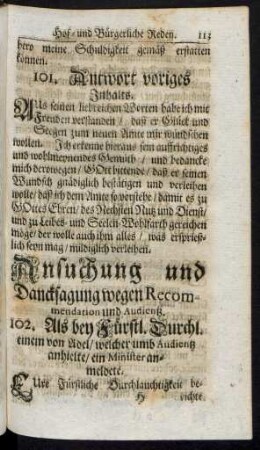 Hof- und Bürgerliche Reden. 113
dero meine Schuldigkeit gemäß erstatten
können.
101. Antwort voriges
Inhalts.
Aus seinen liebreichen Worten habe ich mit
Freuden verstanden / daß er Glück und
Seegen zum neuen Amte mir wündschen
wollen. Ich erkenne hieraus sein auffrichtiges
und wohlmeynendes Gemüth / und bedancke
mich derowegen / GOtt bittende / daß er seinen
Wundsch gnädiglich bestätigen und verleihen
wolle / daß ich dem Amte so vorstehe / damit es zu
GOttes Ehren / des Nechsten Nutz und Dienst /
und zu Leibes- und Seelen-Wohlfarth gereichen
möge / der wolle auch ihn alles / was ersprieß-
lich seyn mag / mildiglich verleihen.
Ansuchung und
Dancksagung wegen Recom-
mendation und Audientz.
102. Als bey Fürstl. Durchl.
einem von Adel / welcher umb Audientz
anhielte / ein Minister an-
meldete.
Eure Fürstliche Durchlauchtigkeit be-
H richte